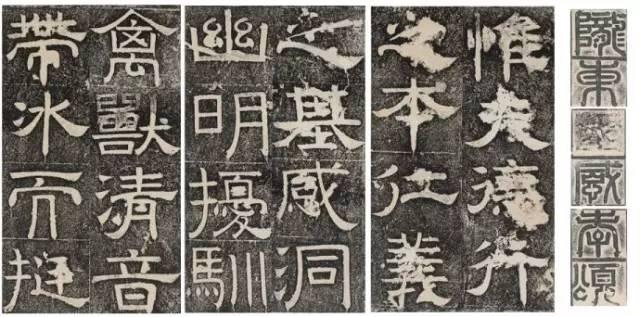 隴東感孝頌
惟夫德行
之本仁義
之基感洞
幽明擾馴
禽獸清音
帶冰而挺